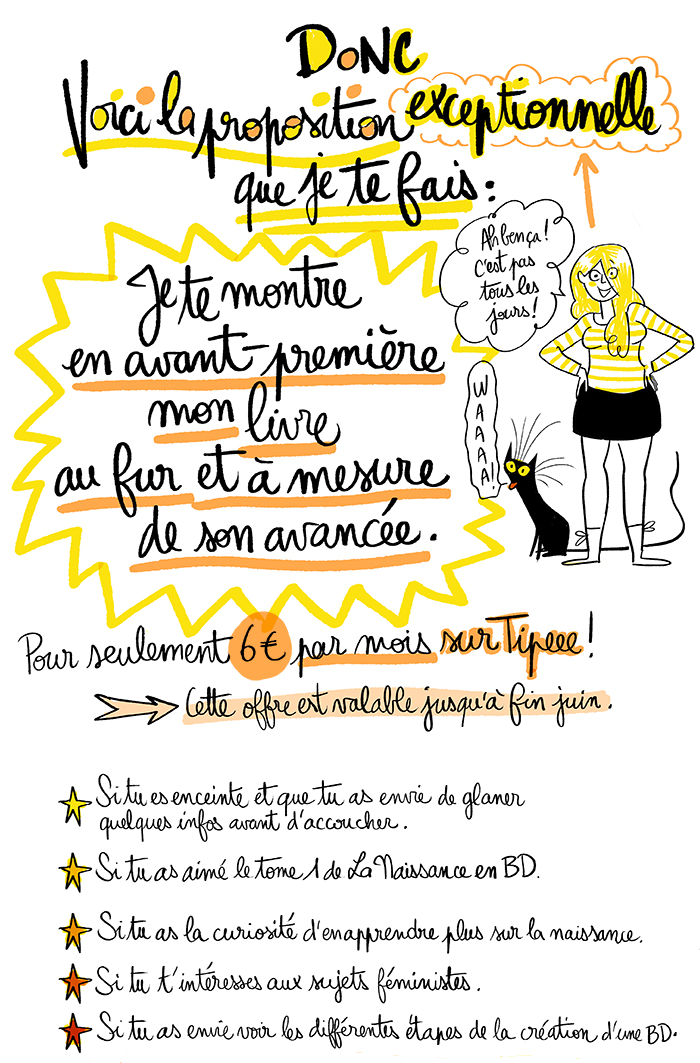 DONC
Voici la proposition exceptionnelle
que je te fais :
Ah ben ça !
c'est pas
tous les
jours !
Je te montre
en avant-première
mon livre
au fur et à mesure
de son avancée.
WAAAA!
Pour seulement 6€ par mois sur Tipeee !
Cette offre est valable jusqu'à fin juin.
Si tu es enceinte et que tu as envie de glaner
quelques infos avant d'accoucher.
Si tu as aimé le tome 1 de La Naissance en BD.
Si tu as la curiosité d'en apprendre plus sur la naissance.
Si tu t'intéresses aux sujets féministes.
Si tu as envie voir les différentes étapes de la création d'une BD.